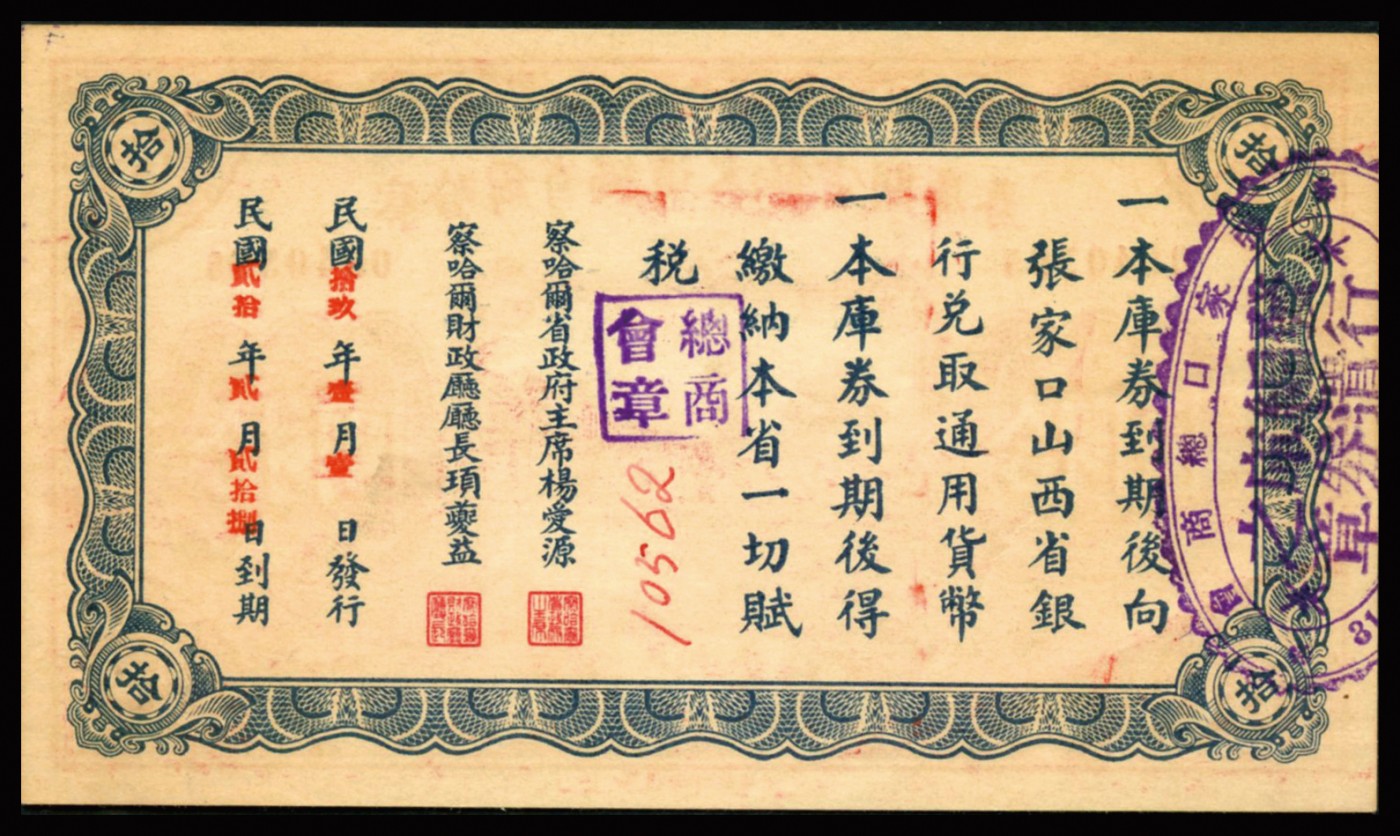 一本庫券到期後向
張家口山西省銀
行兌取通用貨幣
一本庫券到期後得
繳納本省一切賦
稅
總商
會章
10562
察哈爾省政府主席楊愛源
察哈爾財政廳廳長項夔益
民國拾玖年壹月壹日發行
民國貳拾年貳月貳拾捌日到期
拾
拾
拾
拾
張家口總商會